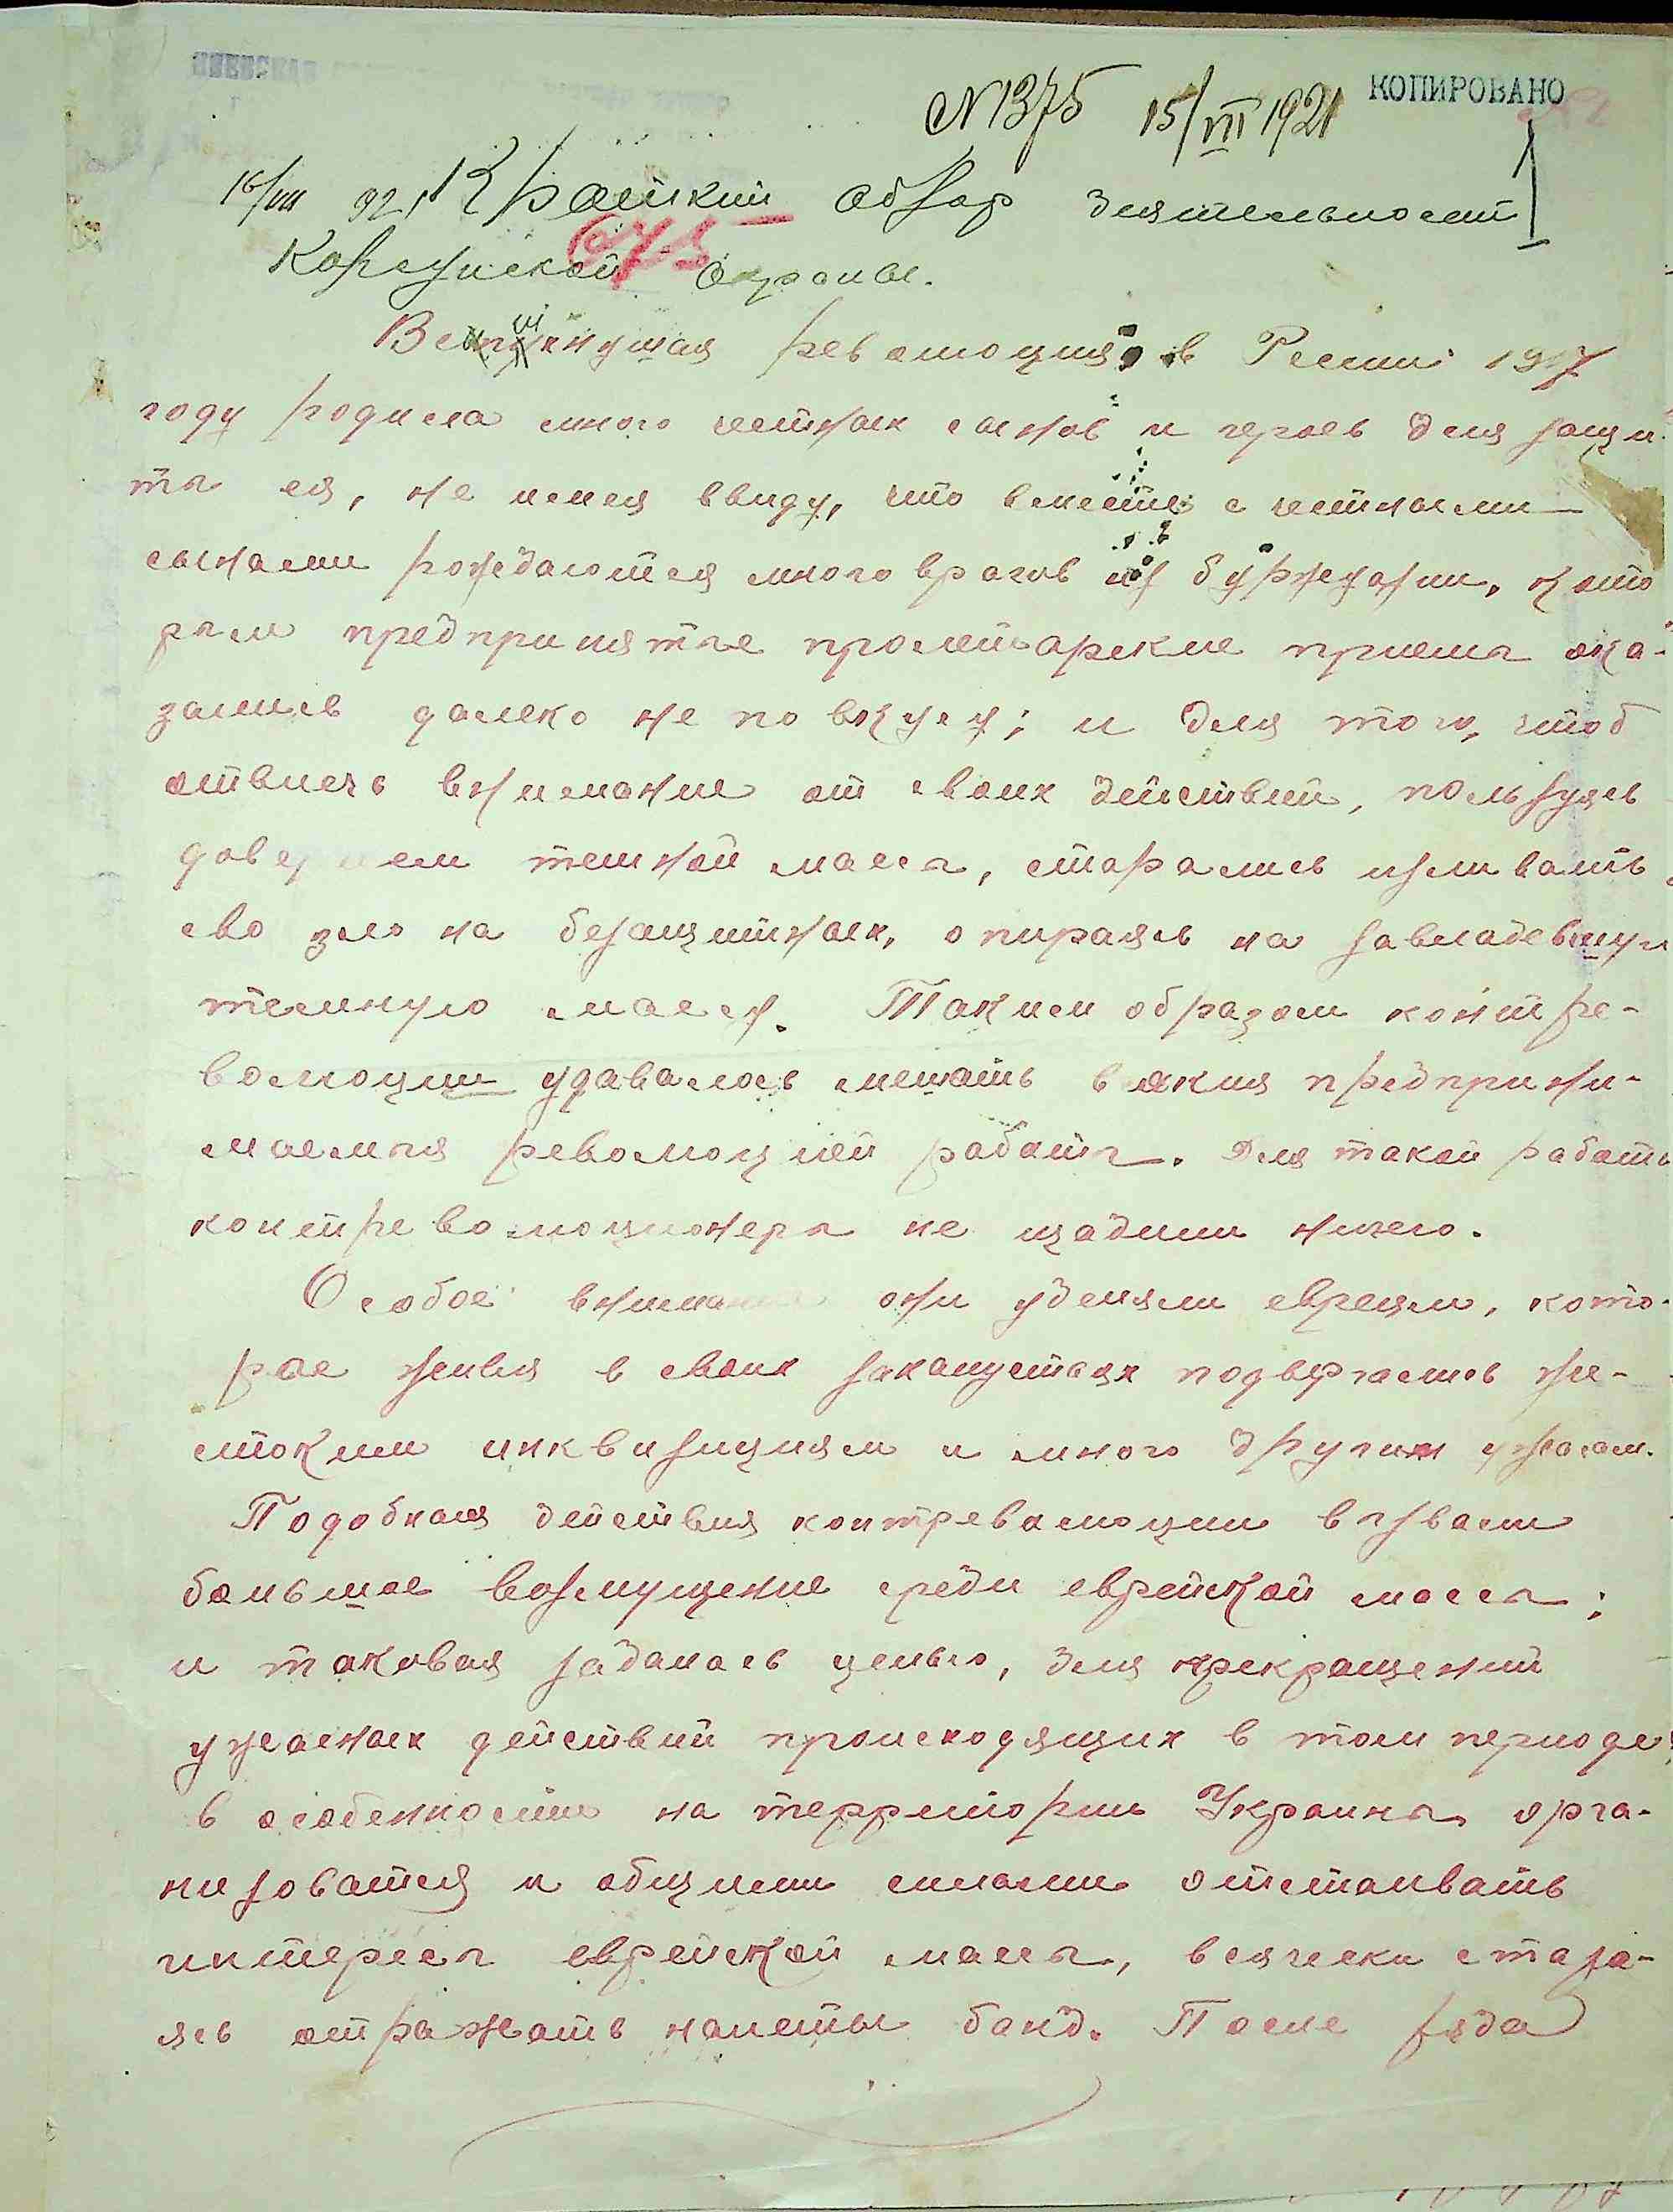 КОПИРОВАНО
№1375 15/VII 1921
16/VII 921 Краткий обзор деятельности
675
Корсунской охраны.
Вспыхнувшая революция в России 1917
году родила много честных сынов и героев для защи-
ты ея, не имея ввиду, что вместе с честными
сынами рождаются много врагов из буржуазии, кото
рым предпринятые пролетарские приемы ока-
зались далеко не по вкусу; и для того, чтоб
отвлечь внимание от своих действий, пользуясь
доверием темной массы, старались изливать
сво зло на безащитных, опираясь на завладевшую
темную массу. Таким образом контре-
волюции удавалось мешать всякия предприни-
маемыя революцией работы. Для такой работы
контреволюционеры не щадили ничего.
Особое внимание они уделяли евреям, кото-
рые живя в своих захолустьях подвергались же-
стоким инквизициям и много других ужасам.
Подобныя действия контреволюции взывали
большое возмущение среди еврейской массы;
и таковая задалась целью, для прекращений
ужасных действий происходящих в том периоде
в особенности на территории Украины орга-
низоватся и общими силами отстаивать
интересы еврейской массы, всячески стара-
ясь отражать налеты банд. После ряда